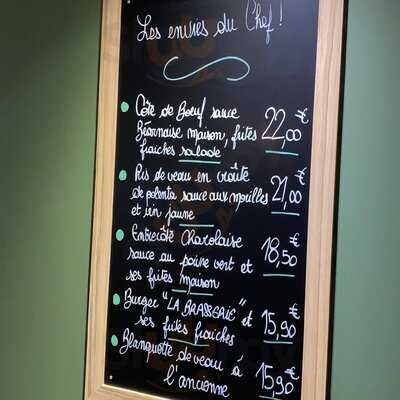 Les envies du Chef !
Côte de Boeuf sauce
Béarnaise maison, frites 22,00 €
fraîches salade
Ris de veau en croûte
de polenta sauce aux morilles 21,00 €
et vin jaune
Entrecôte Charolaise
sauce au poivre vert et 18,50 €
ses frites maison
Burger "LA BRASSERIE" et
ses frites fraîches 15,90 €
Blanquette de veau à
l'ancienne 15,90 €